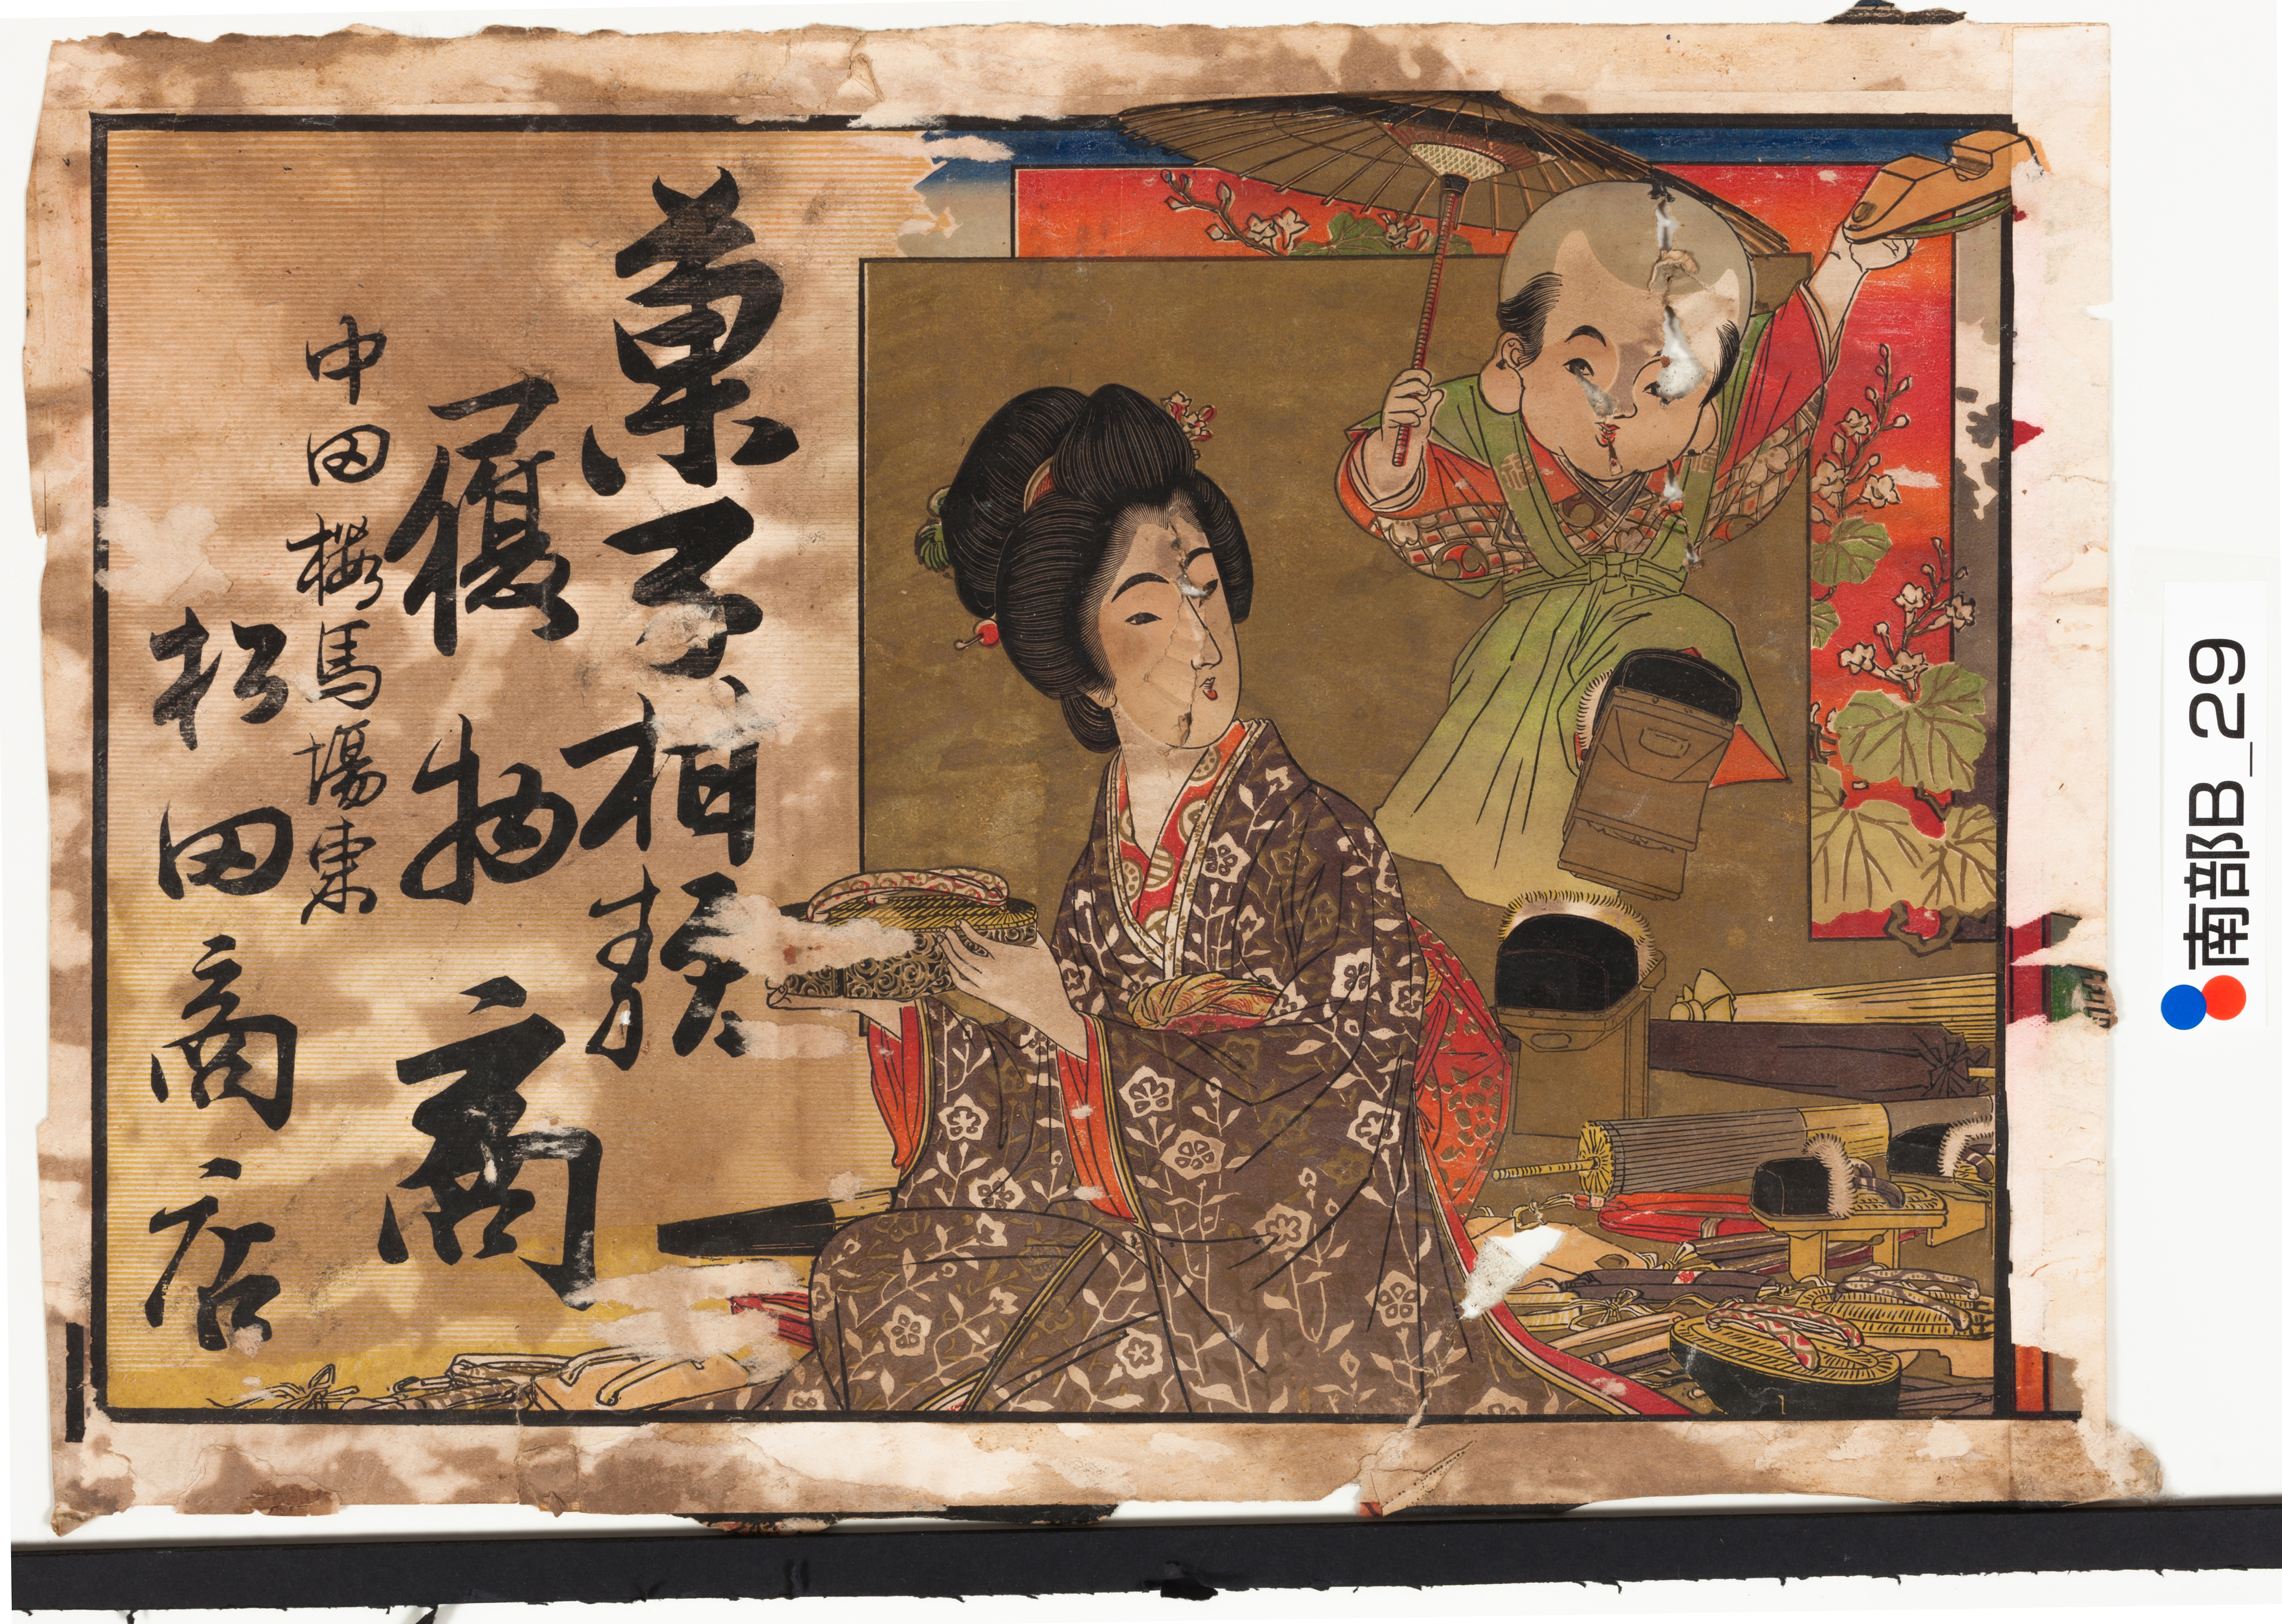 菓子 類
履物商
中田櫻馬場東
松田商店
福
南部B_29